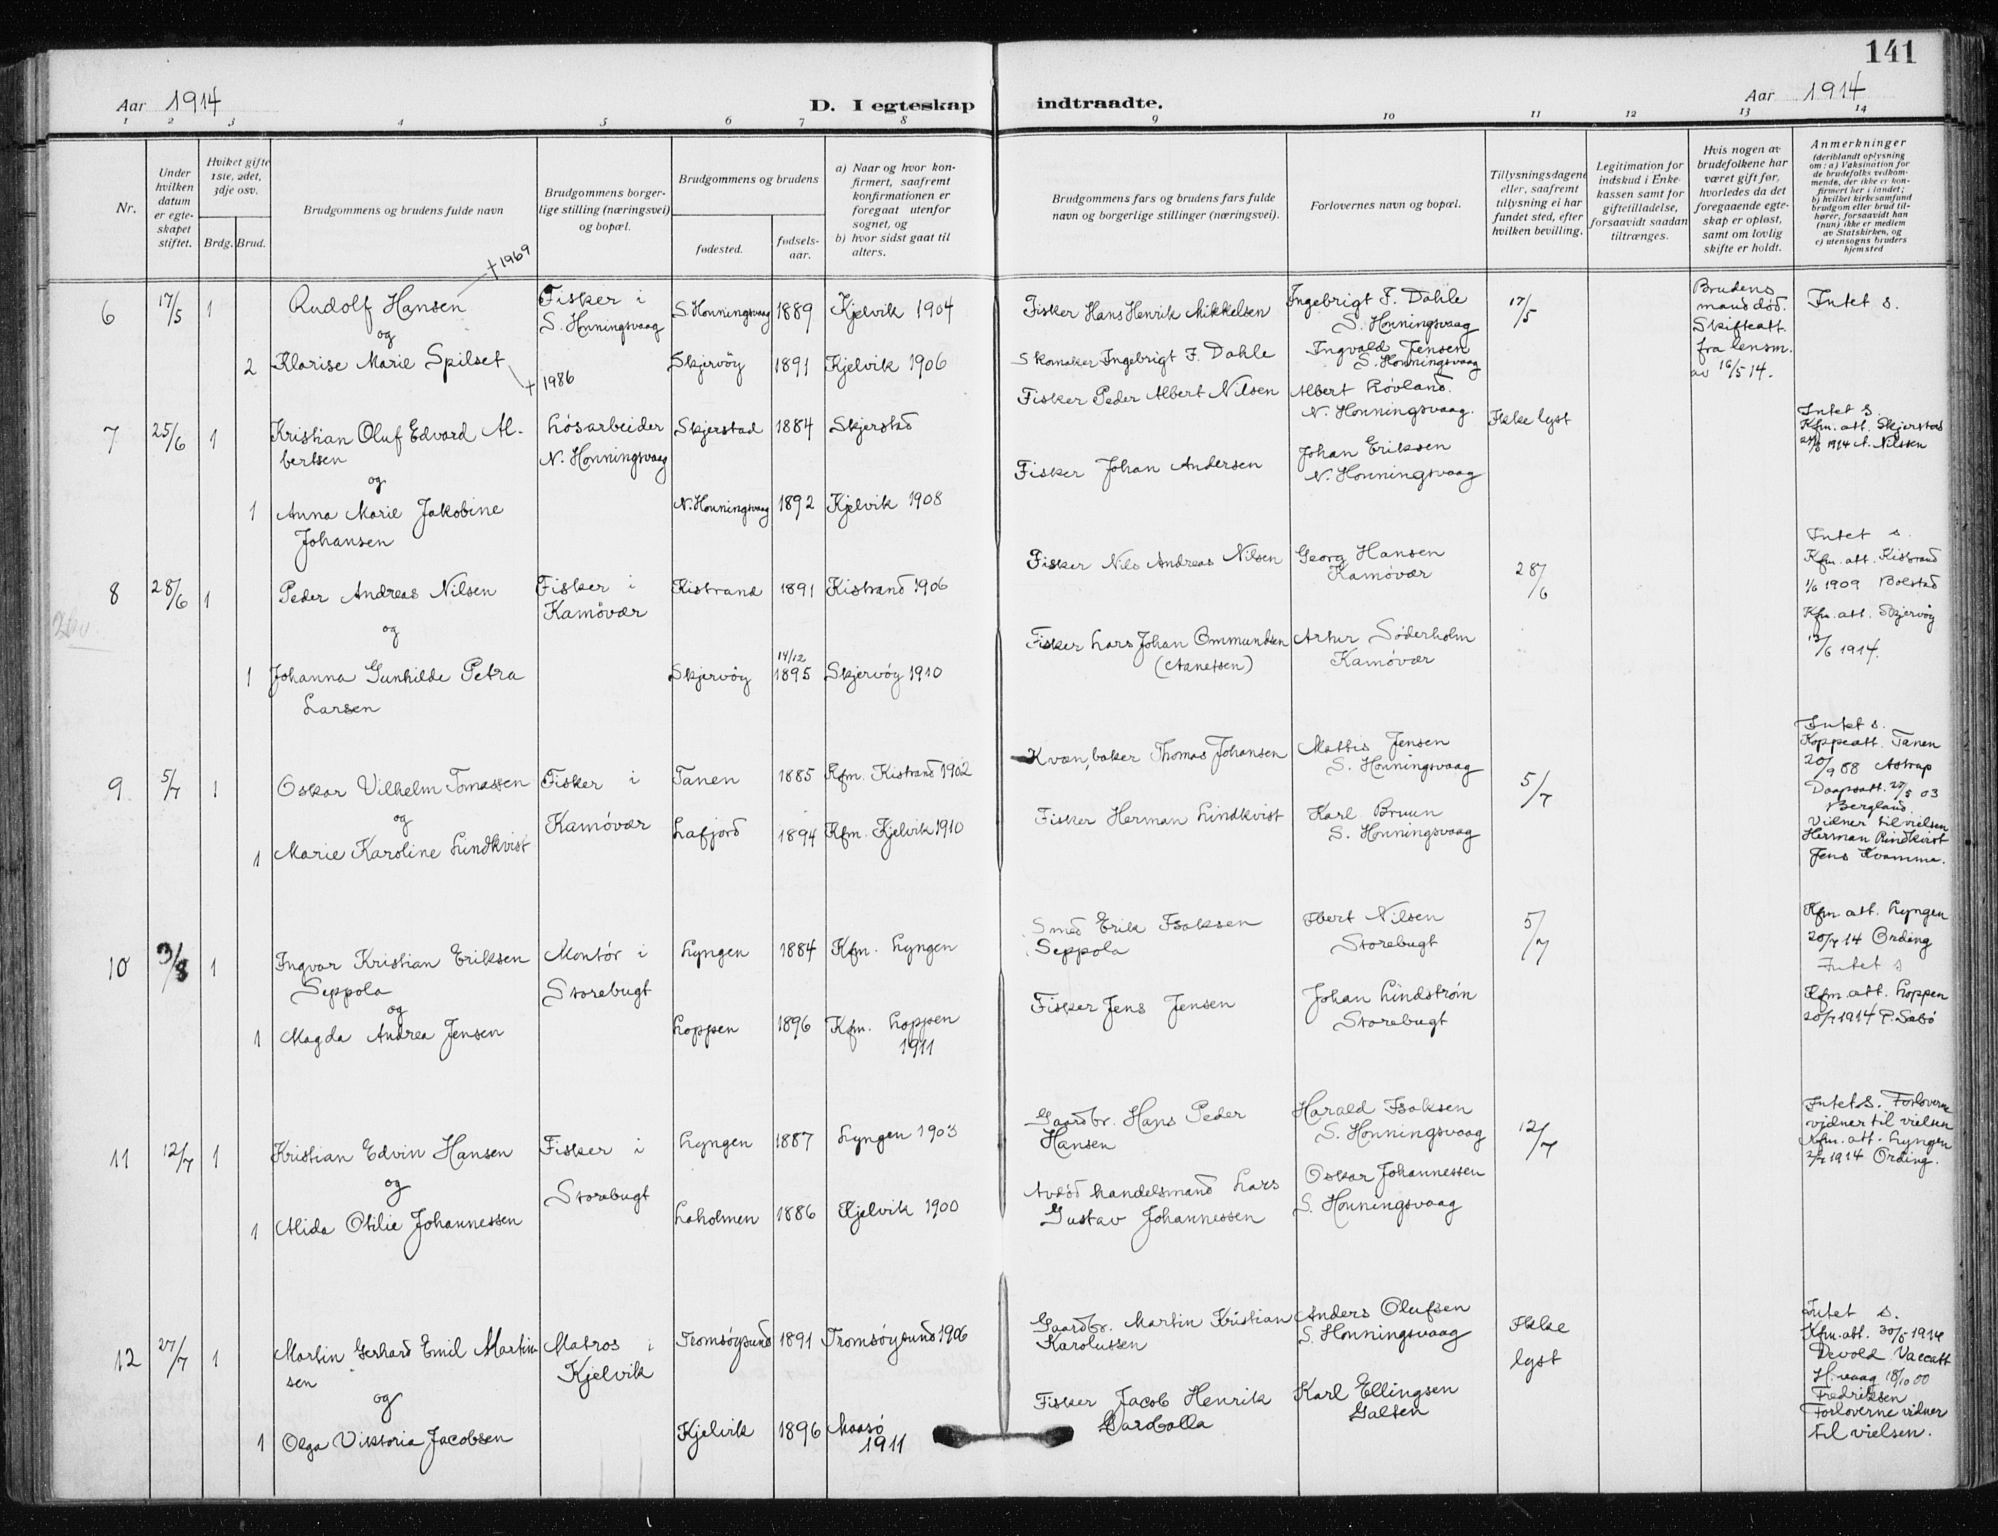 141
Aar 1914
D. I egteskap indtraadte.
Aar 1914
1 2 3 4 5 6 7 8 9 10 11 12 13 14
Nr.
Under
hvilken
datum
er egte-
skapet
stiftet.
Hviket gifte
1ste, 2det,
3dje osv.
Brdg. Brud.
Brudgommens og brudens fulde navn
Brudgommens borger-
lige stilling (næringsvei)
og bopæl.
Brudgommens og brudens
fødested.
fødsels-
aar.
a) Naar og hvor kon-
firmert, saafremt
konfirmationen er
foregaat utenfor
sognet, og
b) hvor sidst gaat til
alters.
Brudgommens fars og brudens fars fulde
navn og borgerlige stillinger (næringsvei).
Forlovernes navn og bopæl.
Tillysningsdagene
eller, saafremt
tillysning ei har
fundet sted, efter
hvilken bevilling.
Legitimation for
indskud i Enke-
kassen samt for
giftetilladelse,
forsaavidt saadan
tiltrænges.
Hvis nogen av
brudefolkene har
været gift før,
hvorledes da det
foregaaende egte-
skap er opløst,
samt om lovlig
skifte er holdt.
Anmerkninger
(deriblandt oplysning
om: a) Vaksination for
de brudefolks vedkom-
mende, der ikke er kon-
firmert her i landet;
b) hvilket kirkesamfund
brudgom eller brud til-
hører, forsaavidt han
(hun) ikke er medlem
av Statskirken, og
c) utensogns bruders
hjemsted
6 17/5 1 Rudolf Hansen † 1969
og
2 Klarise Marie Spilset † 1986
Fisker i
S. Honningsvaag
S. Honningsvaag 1889 Kjelvik 1904
Skjervöy 1891 Kjelvik 1906
Fisker Hans Henrik Mikkelsen
Skomaker Ingebrigt F. Dahle
Ingebrigt F. Dahle
S. Honningsvaag
Ingvald Jensen
S. Honningsvaag
17/5
Brudens
mand död.
Skifteatt.
fra lensm.
av 16/5 14.
Intet s.
7 25/6 1 Kristian Oluf Edvard Al-
bertsen
og
1 Anna Marie Jakobine
Johansen
Lösarbeider
N. Honningsvaag
Skjerstad 1884 Skjerstad
N. Honningsvaag 1892 Kjelvik 1908
Fisker Peder Albert Nilsen
Fisker Johan Andersen
Albert Lövland.
N. Honningsvaag.
Johan Eriksen
N. Honningsvaag
Ikke lyst
Intet s.
Kfm. att. Skjerstad
1914 A. Nilsen
8 28/6 1 Peder Andreas Nilsen
og
1 Johanna Gunhilde Petra
Larsen
Fisker i
Kamövær
Kistrand 1891 Kistrand 1906
14/12
Skjervöy 1895 Skjervöy 1910
Fisker Nils Andreas Nilsen
Fisker Lars Johan Ommundsen
(Aanetsen)
Georg Hansen
Kamövær
Artur Söderholm
Kamövær
28/6
Intet s.
Kfm. att. Kistrand
1/6 1909 Bolstad
Kfm. att. Skjervöy
12/6 1914.
9 5/7 1 Oskar Vilhelm Tomassen
og
1 Marie Karoline Lundkvist
Fisker i
Kamövær
Tanen 1885 Kfm. Kistrand 1902
Lafjord 1894 Kfm. Kjelvik 1910
Kvæn, baker Thomas Johansen
Fisker Herman Lindkvist
Mattis Jensen
S. Honningsvaag
Karl Bruun
S. Honningsvaag
5/7
Intet s.
Koppeatt. Tanen
20/9 88 Astrup
Daapsatt. 25/5 03
Bergland.
Vidner til vielsen
Herman Lindkvist
Jens Kvamma.
10 3/8 1 Ingvar Kristian Eriksen
Seppola
og
1 Magda Andrea Jensen
Montör i
Storebugt
Lyngen 1884 Kfm. Lyngen
Loppen 1896 Kfm. Loppen
1911
Smed Erik Isaksen
Seppola
Fisker Jens Jensen
Ebert Nilsen
Storebugt
Johan Lindström
Storebugt
5/7
Kfm. att. Lyngen
20/7 14 Ording
Intet s
Kfm. att. Loppen
20/7 1914 P. Sebö
11 12/7 1 Kristian Edvin Hansen
og
1 Alida Otilie Johannessen
Fisker i
Storebugt
Lyngen 1887 Lyngen 1903
Laholmen 1886 Kjelvik 1900
Gaardbr. Hans Peder
Hansen
Avdöd handelsmand Lars
Gustav Johannessen
Harald Isaksen
S. Honningsvaag
Oskar Johannessen
S. Honningsvaag
12/7
Intet s. Forloverne
vidner til vielsen
Kfm. att. Lyngen
2/7 1914 Ording.
12 27/7 1 Martin Gerhard Emil Martin-
sen
og
1 Olga Viktoria Jacobsen
Matros i
Kjelvik
Tromsöysund 1891 Tromsöysund 1906
Kjelvik 1896 Maasö
1911
Gaardbr. Martin Kristian
Karolussen
Fisker Jacob Henrik
Gardballa
Anders Olufsen
S. Honningsvaag
Karl Ellingsen
Galten
Ikke
lyst
Intet s.
Kfm. att. 30/5 1914
Devold Vaccatt
H.vaag 18/10 00
Fredriksen
Forloverne vidner
til vielsen.